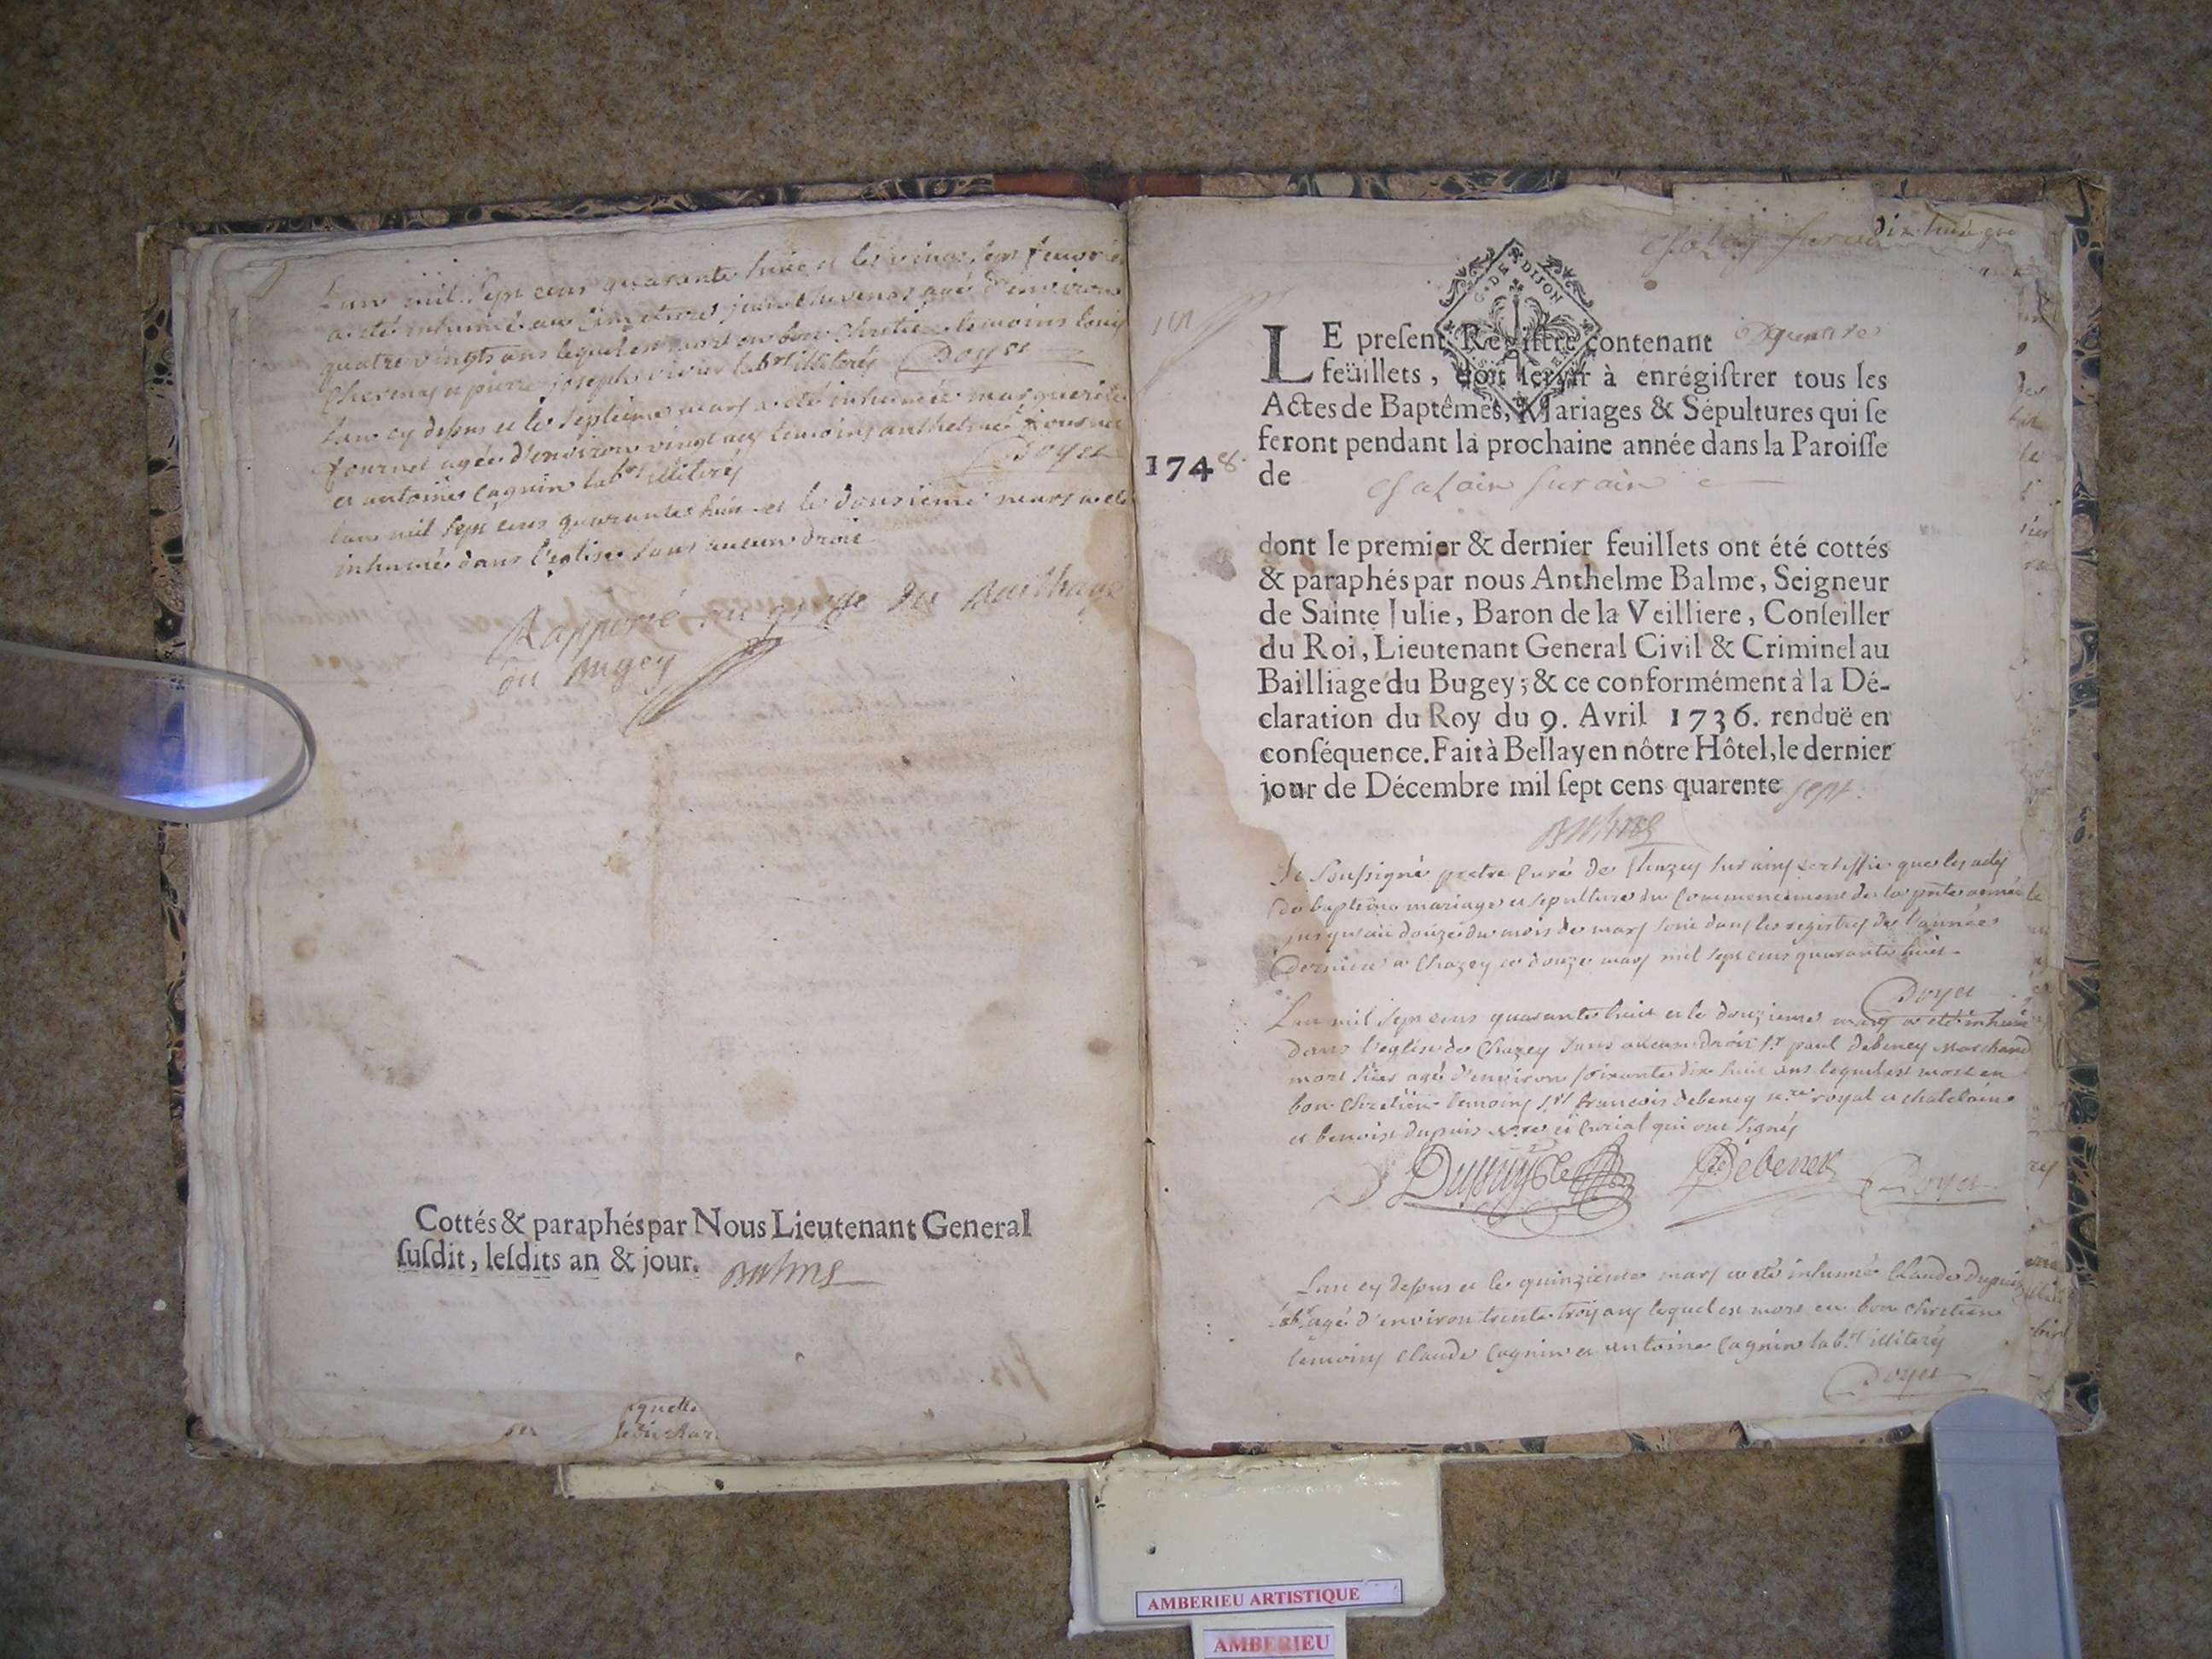 L'an mil sept cens quarante huit et le vingt sept fevrier
a été inhumé au Cimetiere jean Chevenay agé d'environ
quatre vingts ans lequel est mort en bon chretien temoins louis
Chevenay et pierre joseph vivier labrs illiterés Doyet
L'an cy dessus et le septieme mars a été inhumée marguerite
fournet agée d'environ vingt ans temoins anthelme fournet
et antoine Cagnin labrs illiterés Doyet
L'an mil sept cens quarante huit et le douzieme mars a eté
inhumé dans l'eglise sans aucun droit
Rapporté au greffe du Bailliage
du Bugey
Cottés & paraphés par Nous Lieutenant General
susdit, lesdits an & jour. Balme
dix huit
LE present Registre contenant
feüillets, doit servir à enrégistrer tous les
Actes de Baptêmes, Mariages & Sépultures qui se
feront pendant la prochaine année dans la Paroisse
1748.
de
G. DE DIJON
dont le premier & dernier feuillets ont été cottés
& paraphés par nous Anthelme Balme, Seigneur
de Sainte Julie, Baron de la Veilliere, Conseiller
du Roi, Lieutenant General Civil & Criminel au
Bailliage du Bugey; & ce conformément à la Dé-
claration du Roy du 9. Avril 1736. renduë en
conséquence. Fait à Bellay en nôtre Hôtel, le dernier
jour de Décembre mil sept cens quarente sept.
Balme
Je soussigné pretre Curé de Chazey sur ains certiffie que les actes
de bapteme mariage et sepulture du commencement de la pnte année
jusqu'au douze du mois de mars sont dans les registres de l'année
Derniere a Chazey ce douze mars mil sept cens quarante huit.
Doyet
L'an mil sept cens quarante huit et le douzieme mars a été inhumé
dans l'eglise de Chazey sans aucun droit sr paul debeney Marchand
mort hier agé d'environ soixante dix huit ans lequel est mort en
bon chretien temoins srs francois debeney nre royal et chatelain
et benoist dupuis nre et Curial qui ont signés
Dupuys Debeney Doyet
L'an cy dessus et le quinzieme mars a eté inhumé Claude Dupuis
labr agé d'environ trente trois ans lequel est mort en bon chretien
temoins Claude Cagnin et antoine Cagnin labrs illiterés
Doyet
AMBERIEU ARTISTIQUE
AMBERIEU